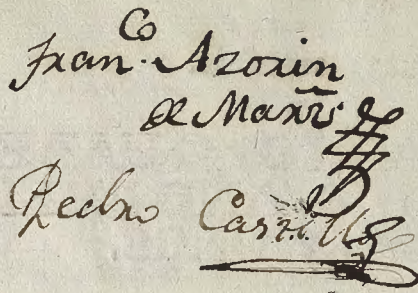 Fran.co Azorin
de Marin
Pedro Carrillo